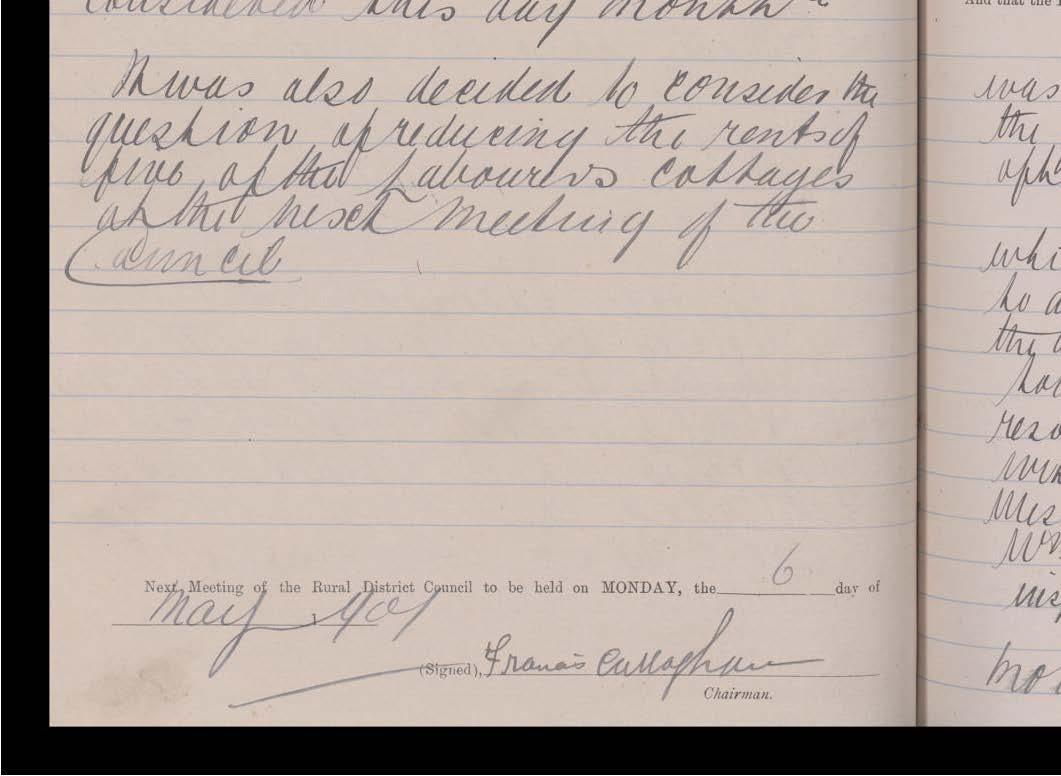 considered this day month
It was also decided to consider the
question of reducing the rents of
five of the Labourers cottages
at the next meeting of the
Council
Next Meeting of the Rural District Council to be held on MONDAY, the 6 day of
May 1901
(Signed), Francis Callaghan
Chairman.
And that the
was
the
whi
to a
the
reso
Mes
ins